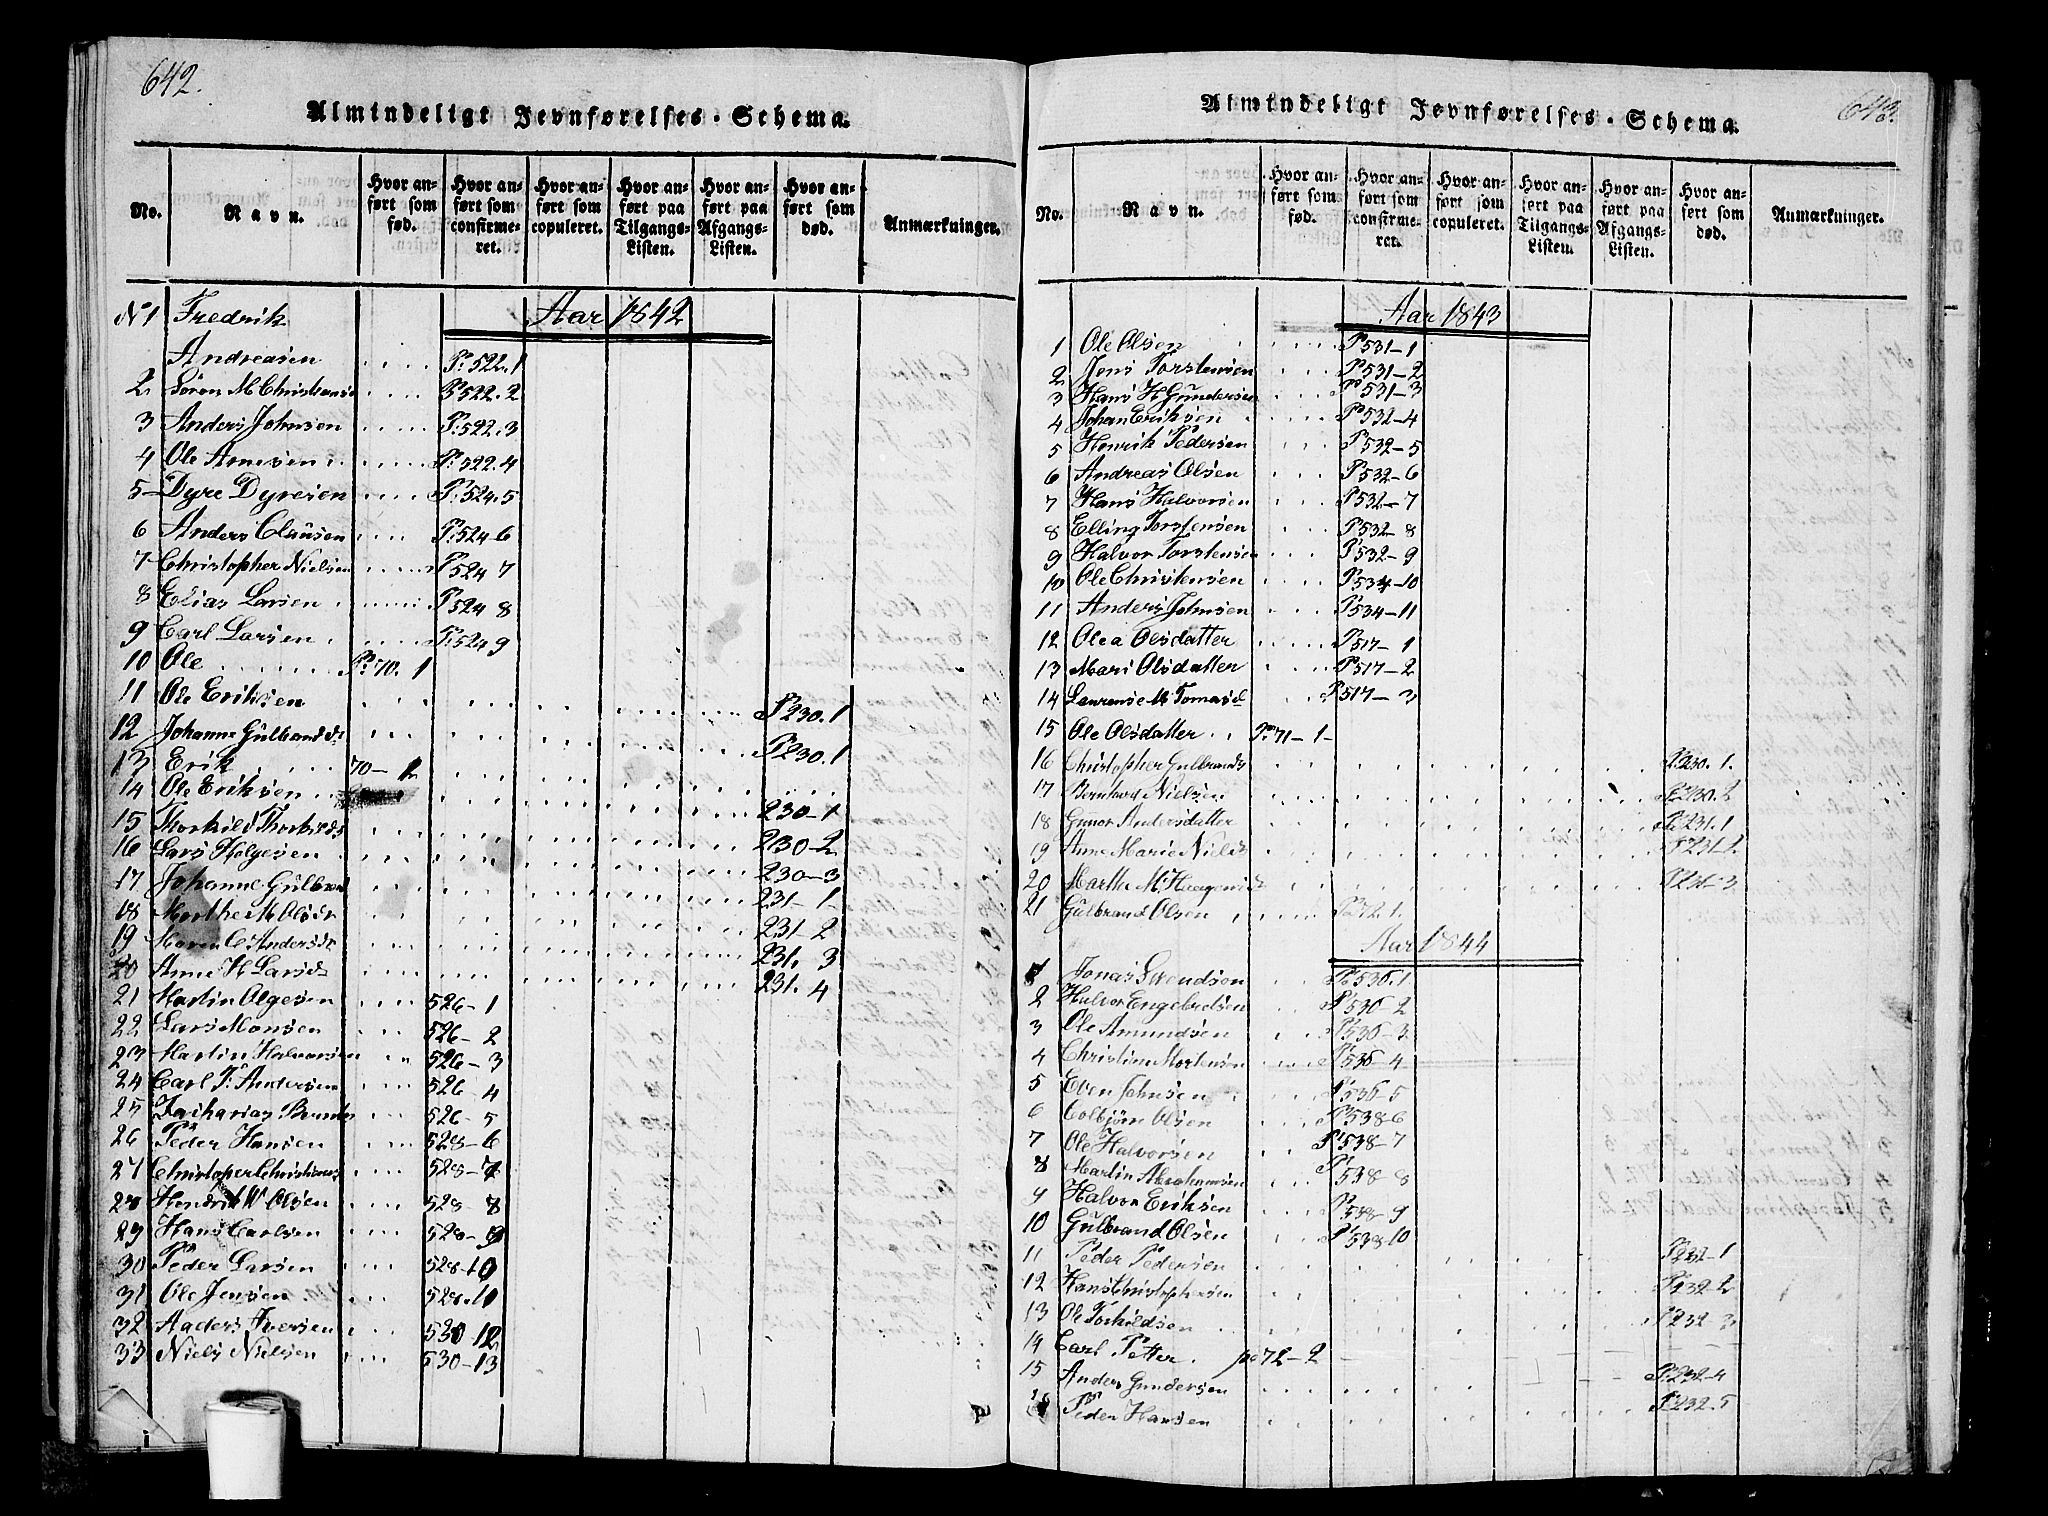 642.
Almindeligt Jevnførelses-Schema.
No. Navn. Hvor anført som fød. Hvor anført som confirmeret. Hvor anført som copuleret. Hvor anført paa Tilgangs-Listen. Hvor anført paa Afgangs-Listen. Hvor anført som død. Anmærkninger.
Aar 1842
N 1 Fredrik
Andreasen P. 522.1
2 Sören M Christians P 522.2
3 Anders Johnsen P. 522.3
4 Ole Arnesen P. 522.4
5 Dyre Dyresen P. 524.5
6 Anders Clausen P. 524 6
7 Christopher Nielsen P 524 7
8 Elias Larsen P. 524 8
9 Carl Larsen P. 524 9
10 Ole P. 70. 1
11 Ole Eriksen P 230.1
12 Johanne Gulbrandsd P 230.1
13 Erik 70 - 2
14 Ole Eriksen 230-1
15 Thorkild Thorkilds 230-2
16 Lars Holgesen 230-3
17 Johanne Gulbrand 231-1
18 Marthe M Olsdr 231-2
19 Maren C Andersdr 231. 3
20 Anne K Larsdr 231. 4
21 Martin Olgesen 526-1
22 Lars Monsen 526-2
23 Martin Halvorsen 526-3
24 Carl P. Andersen 526-4
25 Zacharias 526-5
26 Peder Hansen 528-6
27 Christopher Christians 528-7
28 Hendrik W Olsen 528-8
29 Hans Carlsen 528-9
30 Peder Larsen 528-10
31 Ole Jensen 528.11
32 Anders Iversen 530-12
33 Niels Nielsen 530-13
643.
Almindeligt Jevnførelses-Schema.
No. Navn. Hvor anført som fød. Hvor anført som confirmeret. Hvor anført som copuleret. Hvor anført paa Tilgangs-Listen. Hvor anført paa Afgangs-Listen. Hvor anført som død. Anmærkninger.
Aar 1843
1 Ole Olsen P 531-1
2 Jens Torstensen P 531-2
3 Hans H Gundersen P 531-3
4 Johan Eriksen P 532-4
5 Henrik Pedersen P 532-5
6 Andreas Olsen P 532-6
7 Hans Halvorsen P 532-7
8 Elling Torstensen P 532-8
9 Halvor Torstensen P 532-9
10 Ole Christensen P 534-10
11 Anders Johnsen P 534-11
12 Olea Olsdatter P 517-1
13 Mari Olsdatter P 517-2
14 Laurense M Tomasd P 517-3
15 Ole Olsdatter P. 71-1-
16 Christopher Gulbrands P. 230.1.
17 Bernhard Nielsen P. 230.2
18 Gunor Andersdatter P. 231.1
19 Anne Marie Nielsd P 231-2
20 Marthe M. Haagensd P 231-3
21 Gulbrand Olsen P 72.1.
Aar 1844
1 Jonas Svendsen P. 536.1
2 Halvor Engebretsen P 536-2
3 Ole Amundsen P 536-3
4 Christian Mortensen P 536-4
5 Even Johnsen P 536-5
6 Colbjörn Olsen P 538-6
7 Ole Halvorsen P 538-7
8 Martin Abrahamsen P 538 8
9 Halvor Eriksen P 538-9
10 Gulbrand Olsen P 538-10
11 Peder Pedersen P 232-1
12 Hans Christophersen P. 232-2
13 Ole Torkildsen P 232-3
14 Carl Petter. pa 72-2
15 Anders Gundersen P. 232-4
16 Peder Hansen P 232.5